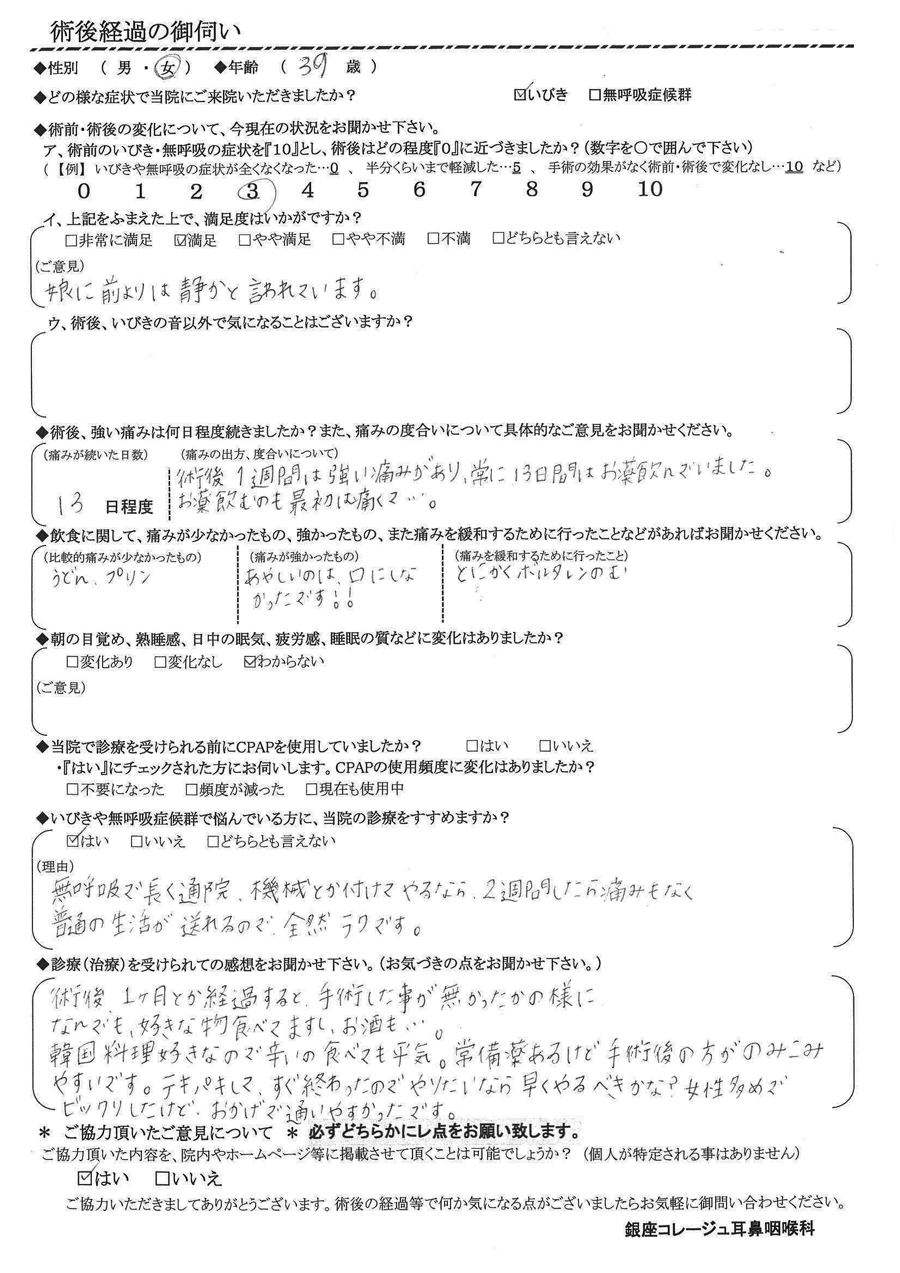 術後経過の御伺い
◆性別　（ 男 ・ 女 ）　◆年齢　（ 39 歳 ）
◆どの様な症状で当院にご来院いただきましたか？　☑いびき　□無呼吸症候群
◆術前・術後の変化について、今現在の状況をお聞かせ下さい。
ア、術前のいびき・無呼吸の症状を『10』とし、術後はどの程度『0』に近づきましたか？（数字を〇で囲んで下さい）
（【例】 いびきや無呼吸の症状が全くなくなった…0 、 半分くらいまで軽減した…5 、 手術の効果がなく術前・術後で変化なし…10 など）
0　1　2　3　4　5　6　7　8　9　10
イ、上記をふまえた上で、満足度はいかがですか？
□非常に満足　☑満足　□やや満足　□やや不満　□不満　□どちらとも言えない
（ご意見）
娘に前よりは静かと言われています。
ウ、術後、いびきの音以外で気になることはございますか？
◆術後、強い痛みは何日程度続きましたか？また、痛みの度合いについて具体的なご意見をお聞かせください。
（痛みが続いた日数）　（痛みの出方、度合いについて）
術後1週間は強い痛みがあり、常に13日間はお薬飲んでいました。
13 日程度　お薬飲むのも最初は痛くて…。
◆飲食に関して、痛みが少なかったもの、強かったもの、また痛みを緩和するために行ったことなどがあればお聞かせください。
（比較的痛みが少なかったもの）　（痛みが強かったもの）　（痛みを緩和するために行ったこと）
うどん、プリン　あやしいのは、口にしな　とにかくボルタレンのむ
かったです!!
◆朝の目覚め、熟睡感、日中の眠気、疲労感、睡眠の質などに変化はありましたか？
□変化あり　□変化なし　☑わからない
（ご意見）
◆当院で診療を受けられる前にCPAPを使用していましたか？　□はい　□いいえ
・『はい』にチェックされた方にお伺いします。CPAPの使用頻度に変化はありましたか？
□不要になった　□頻度が減った　□現在も使用中
◆いびきや無呼吸症候群で悩んでいる方に、当院の診療をすすめますか？
☑はい　□いいえ　□どちらとも言えない
（理由）
無呼吸で長く通院、機械とか付けてやるなら、2週間したら痛みもなく
普通の生活が送れるので、全然ラクです。
◆診療（治療）を受けられての感想をお聞かせ下さい。（お気づきの点をお聞かせ下さい。）
術後、1ヶ月とか経過すると、手術した事が無かったかの様に
なんでも、好きな物食べてますし、お酒も…。
韓国料理好きなので辛いの食べても平気。常備薬あるけど手術後の方がのみこみ
やすいです。テキパキして、すぐ終わったのでやりたいなら早くやるべきかな？女性多めで
ビックリしたけど、おかげで通いやすかったです。
＊ ご協力頂いたご意見について ＊ 必ずどちらかにレ点をお願い致します。
ご協力頂いた内容を、院内やホームページ等に掲載させて頂くことは可能でしょうか？（個人が特定される事はありません）
☑はい　□いいえ
ご協力いただきましてありがとうございます。術後の経過等で何か気になる点がございましたらお気軽に御問い合わせください。
銀座コレージュ耳鼻咽喉科